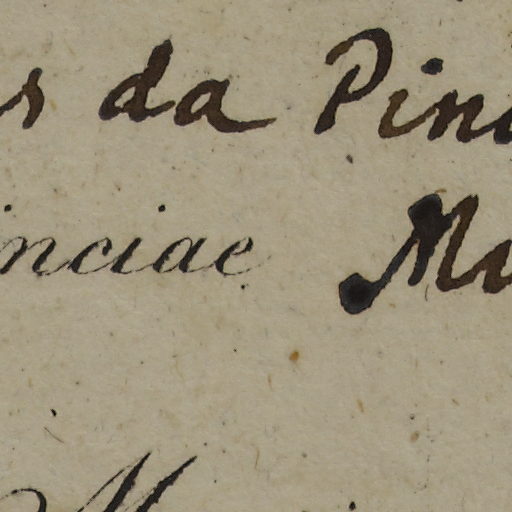 s da Pin
inciae Mi
M